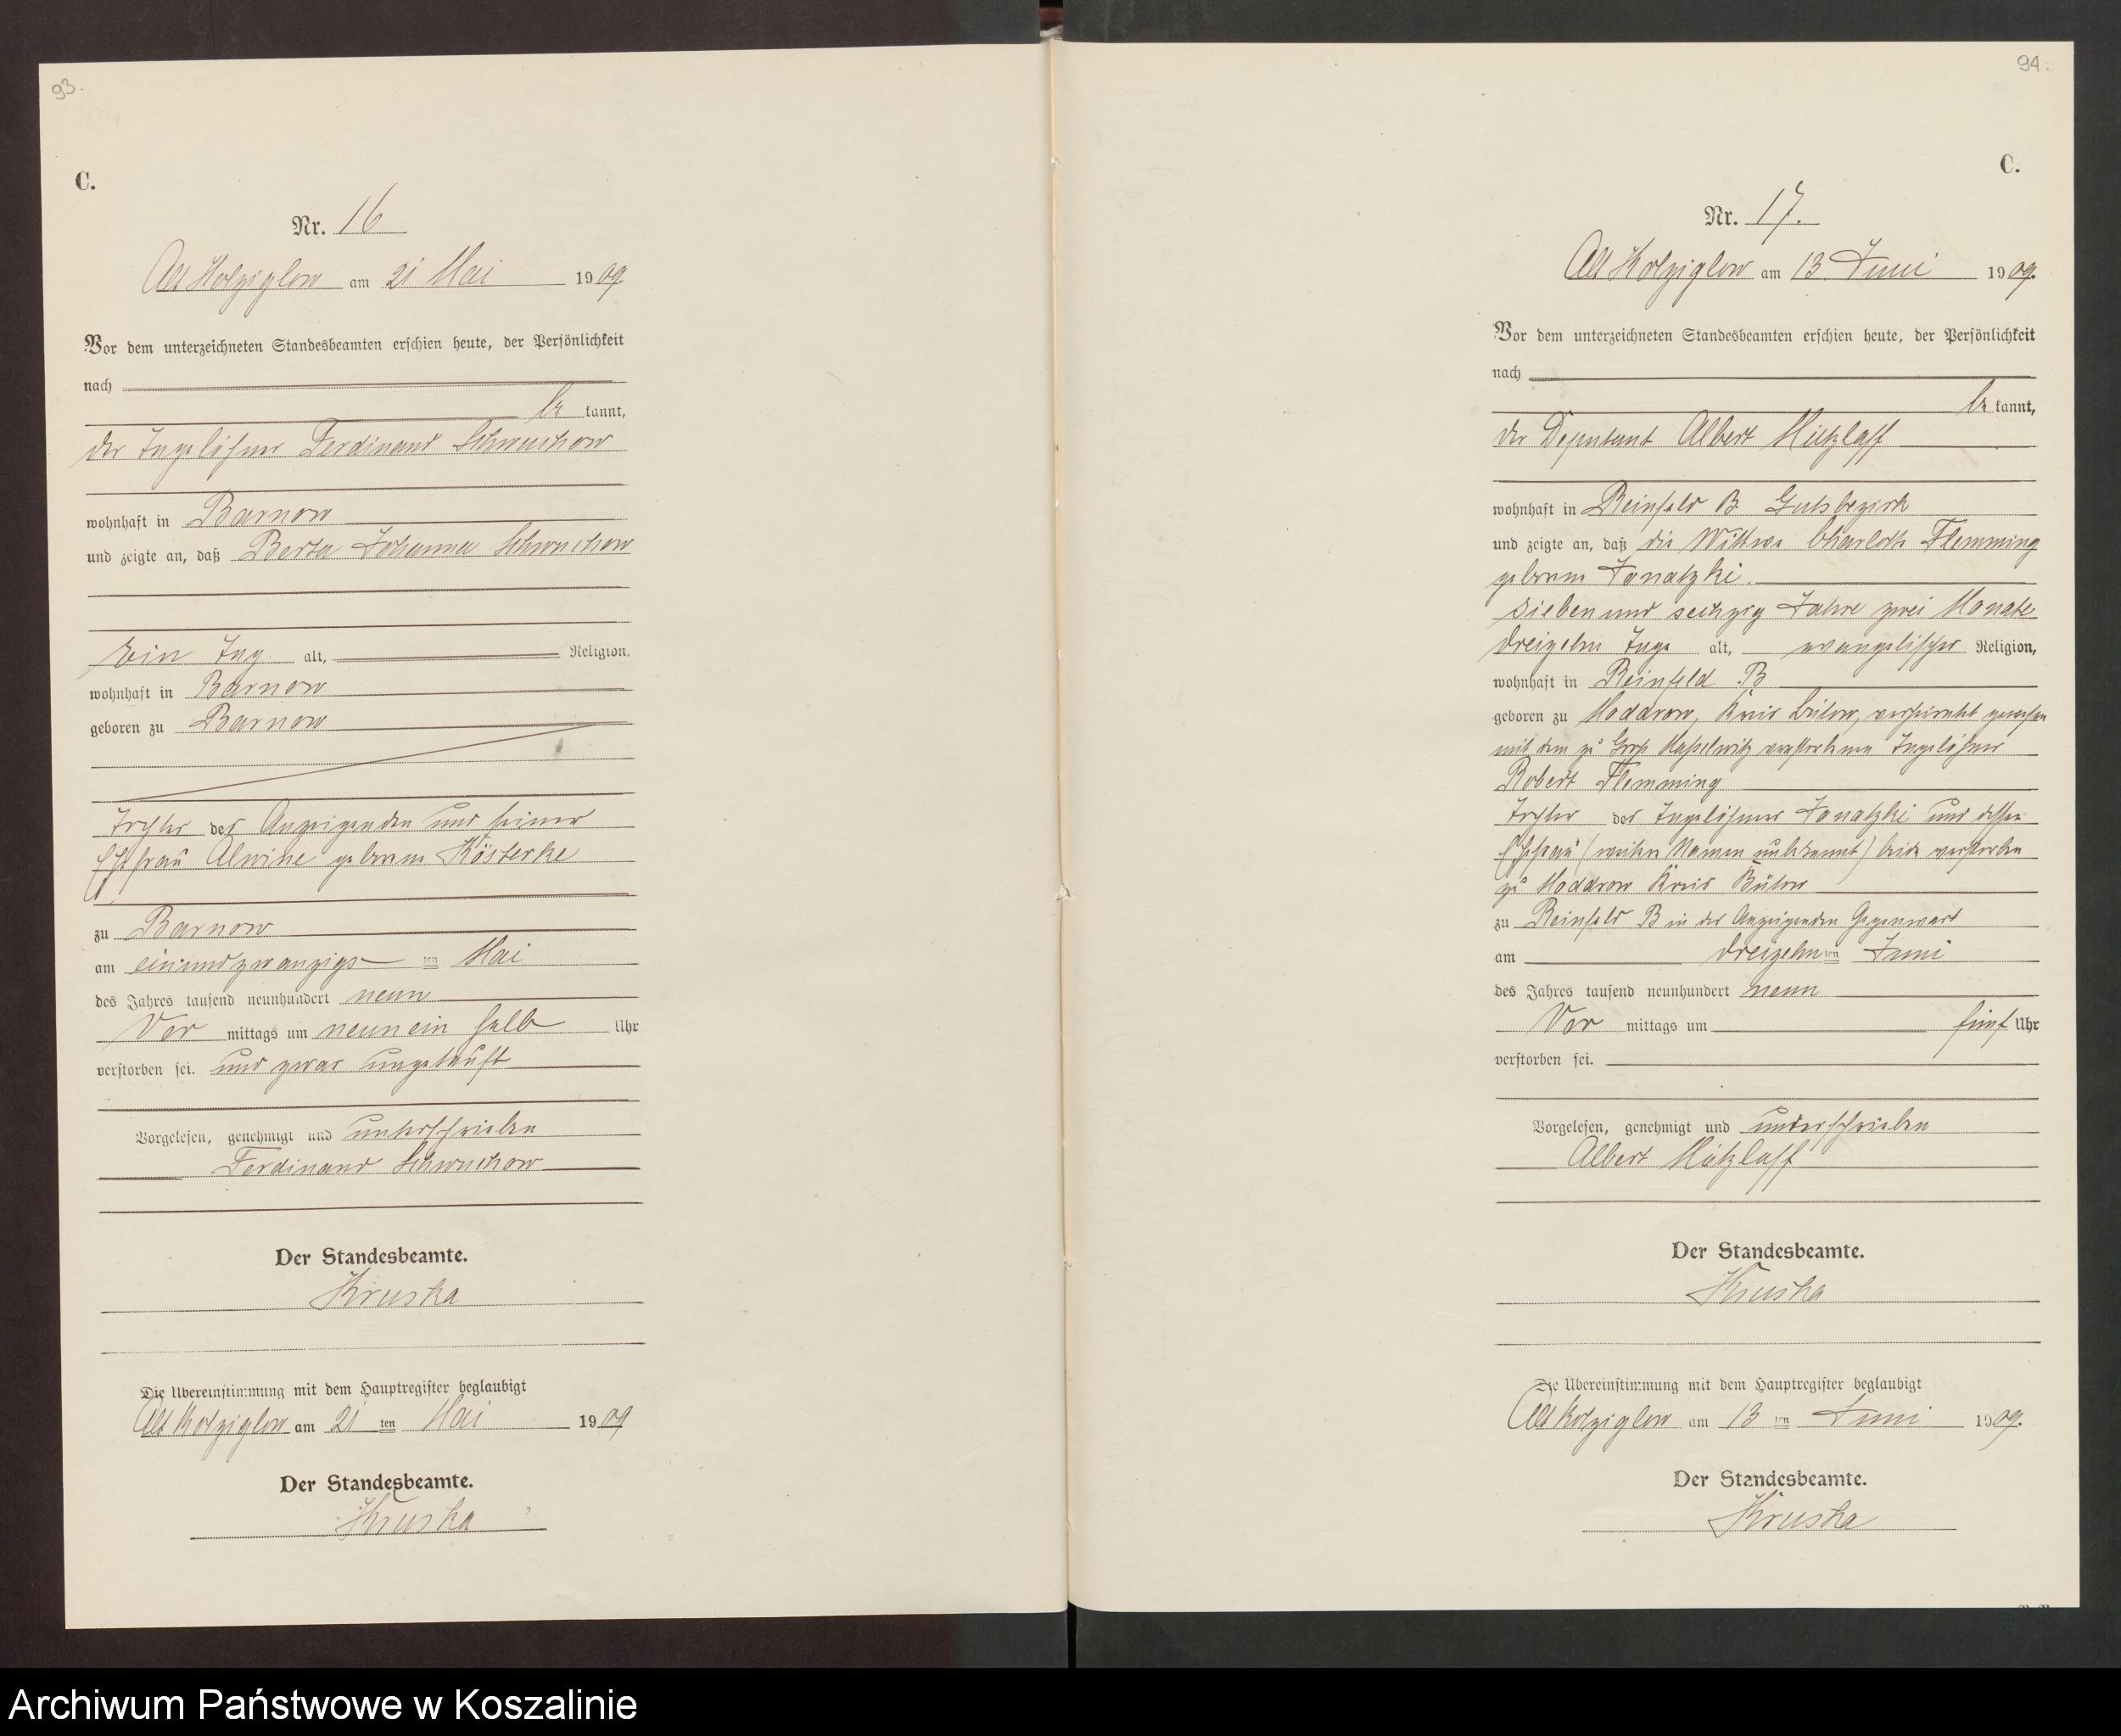 93.
C.
Nr. 16
Alt Kolziglow am 21 Mai 1909.
Vor dem unterzeichneten Standesbeamten erschien heute, der Persönlichkeit
nach
be kannt,
der Tagelöhner Ferdinand Schwuchow
wohnhaft in Barnow
und zeigte an, daß Berta Johanna Schwuchow
Ein Tag alt, Religion,
wohnhaft in Barnow
geboren zu Barnow
Tochter des Anzeigenden und seiner
Ehefrau Alwine geborene Kösterke
zu Barnow
am einundzwanzigs ten Mai
des Jahres tausend neunhundert neun
Vor mittags um neun ein halb Uhr
verstorben sei. und zwar ungetauft
Vorgelesen, genehmigt und unterschrieben
Ferdinand Schwuchow
Der Standesbeamte.
Kruska
Die Übereinstimmung mit dem Hauptregister beglaubigt
Alt Kolziglow am 21 ten Mai 1909
Der Standesbeamte.
Kruska
94.
C.
Nr. 17.
Alt Kolziglow am 13 Juni 1909.
Vor dem unterzeichneten Standesbeamten erschien heute, der Persönlichkeit
nach
be kannt,
der Deputant Albert Mützlaff
wohnhaft in Reinfeld B Gutsbezirk
und zeigte an, daß die Wittwe Charlotte Flemming
geborene Janatzki.
Sieben und sechzig Jahre zwei Monate
dreizehn Tage alt, evangelischer Religion,
wohnhaft in Reinfeld B
geboren zu Moddrow, Kreis Bütow, verheirathet gewesen
mit dem zu Groß verstorbenen Tagelöhner
Robert Flemming
Tochter des Tagelöhner Janatzki und dessen
Ehefrau (weitere Namen unbekannt) beide verstorben
zu Moddrow Kreis Bütow
zu Reinfeld B in des Anzeigenden Gegenwart
am dreizehn ten Juni
des Jahres tausend neunhundert neun
Vor mittags um fünf Uhr
verstorben sei.
Vorgelesen, genehmigt und unterschrieben
Albert Mützlaff
Der Standesbeamte.
Kruska
Die Übereinstimmung mit dem Hauptregister beglaubigt
Alt Kolziglow am 13 ten Juni 1909.
Der Standesbeamte.
Kruska
Archiwum Państwowe w Koszalinie